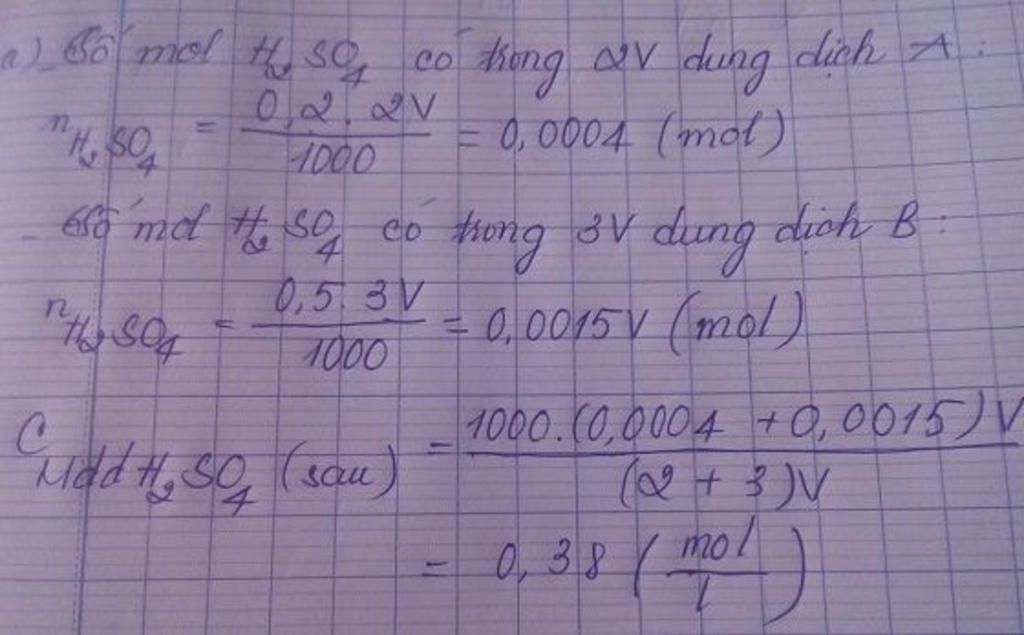 a) Số mol H₂SO₄ có trong 2V dung dịch A :
nH₂SO₄ = 0,2. 2V / 1000 = 0,0004 (mol)
- Số mol H₂SO₄ có trong 3V dung dịch B :
nH₂SO₄ = 0,5. 3V / 1000 = 0,0015V (mol)
CMdd H₂SO₄ (sau) = 1000.(0,0004 + 0,0015)V / (2 + 3)V
= 0,38 (mol / l)